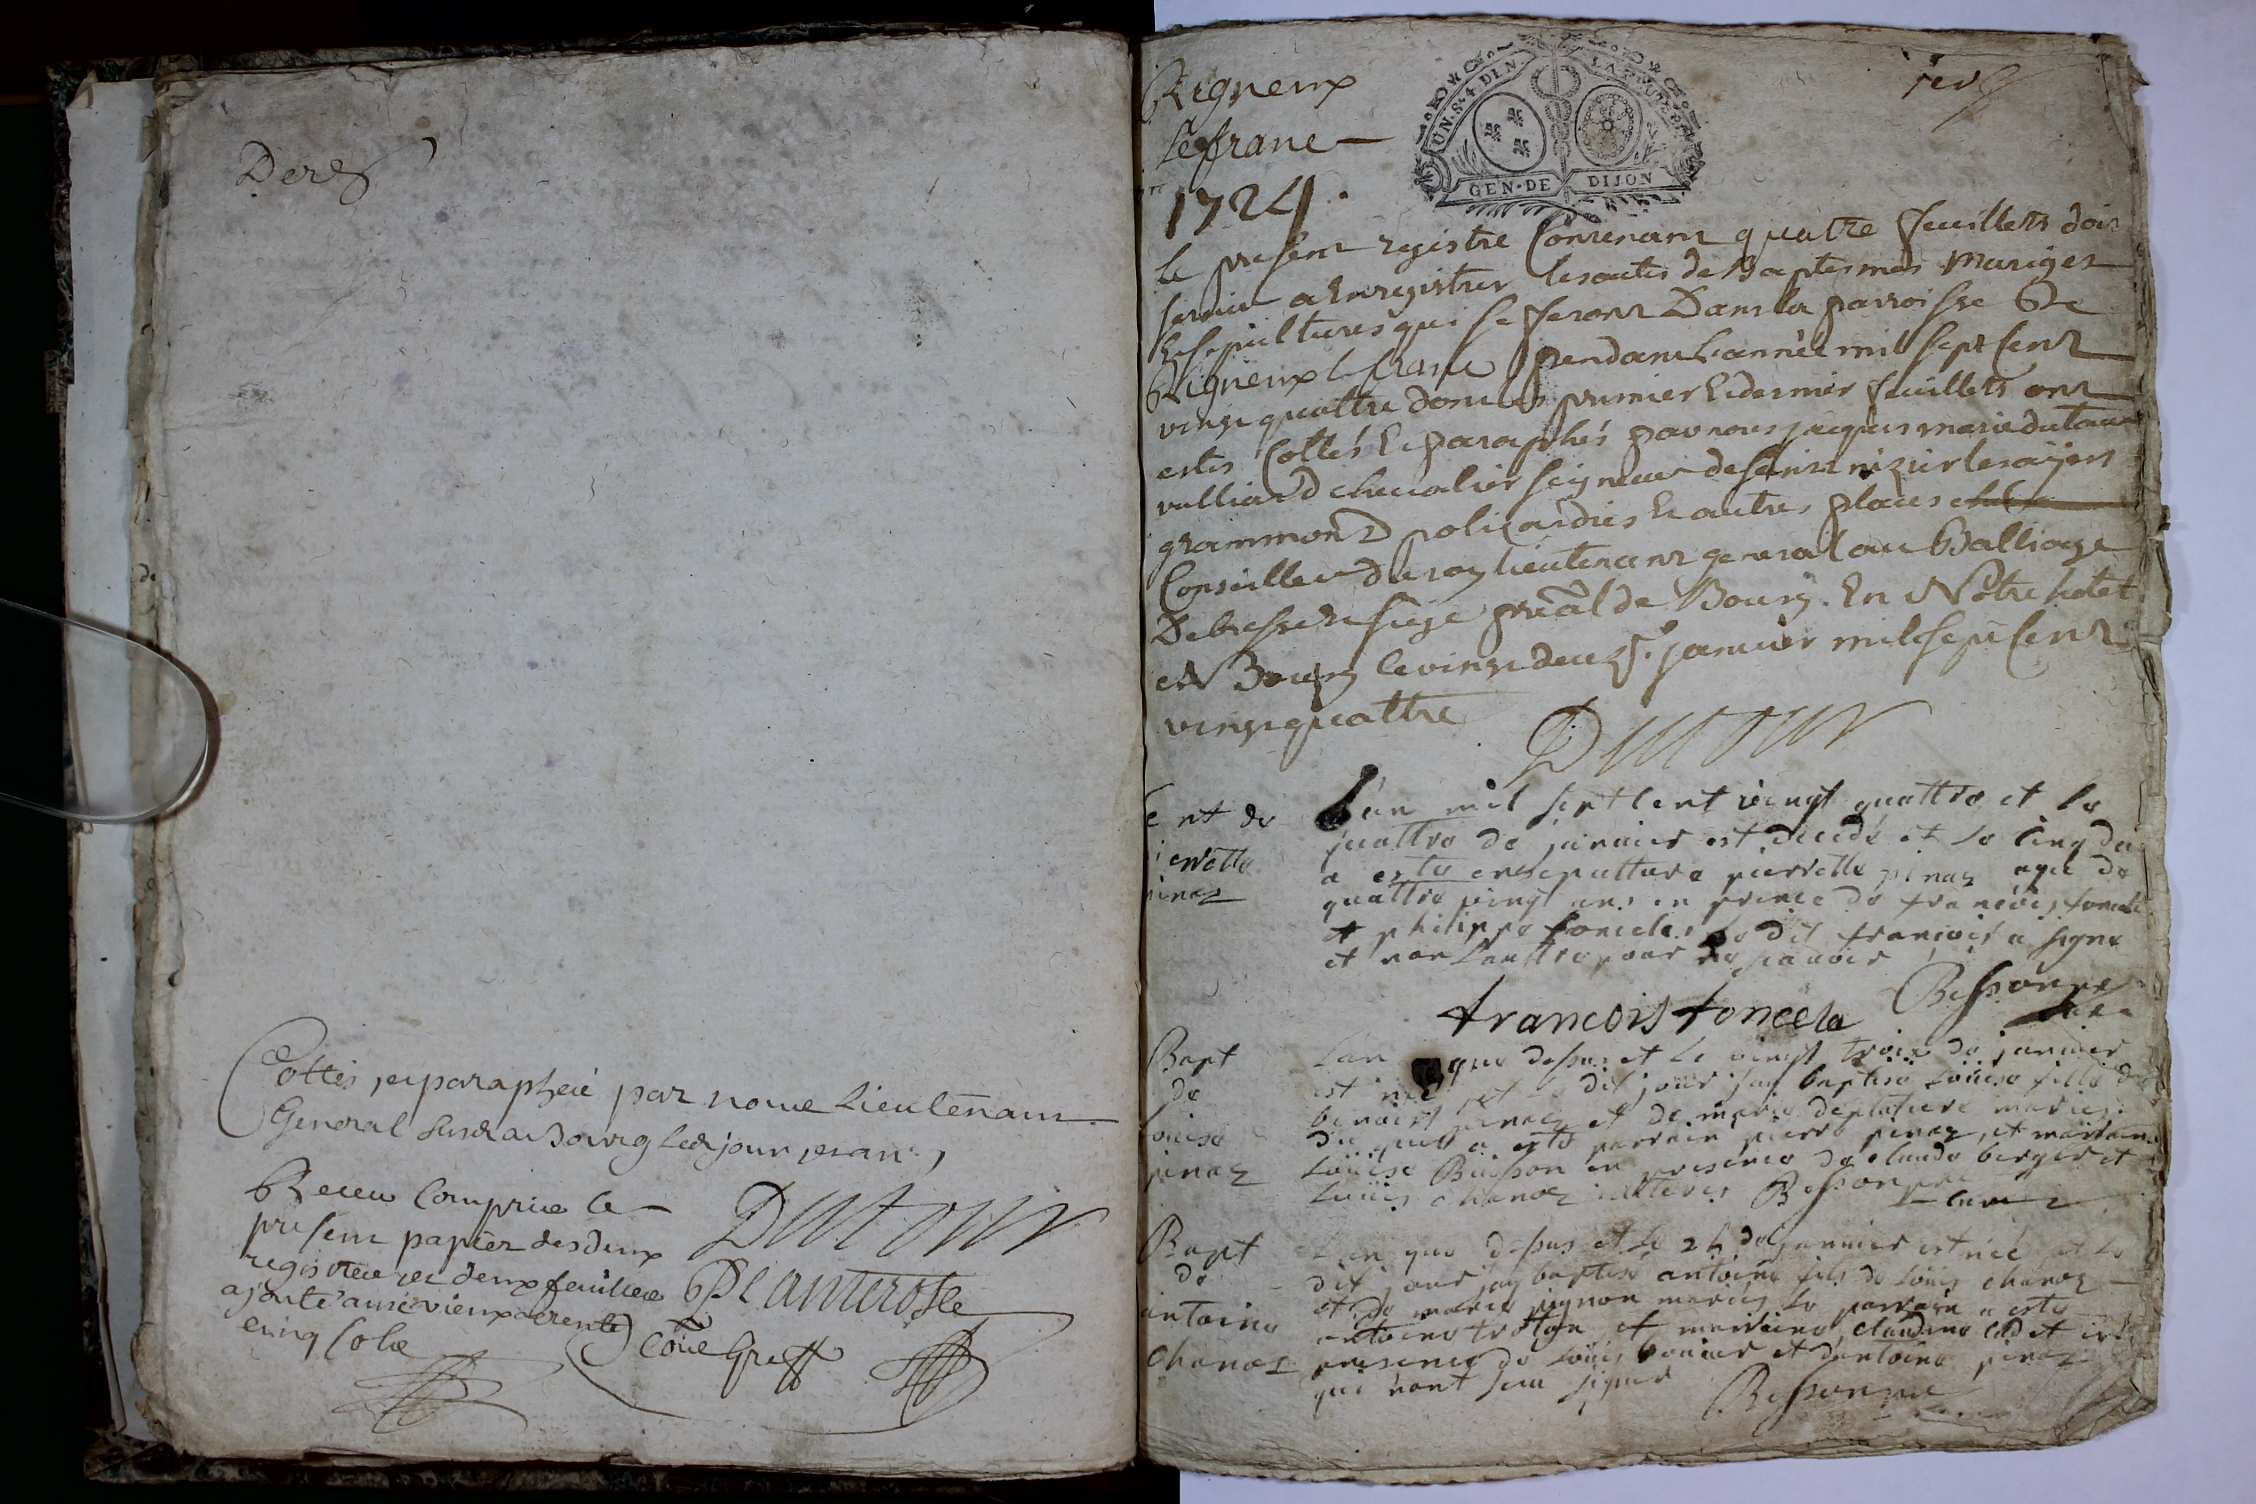 Der
Cottés, et paraphéé par nous Lieutenant
General susd a Bourg led jour et an,
Receu compris le
present papier des deux
registres et deux feuilles
ajouté aux vieux trente
cinq sols
Dutour
Planterose
Coûe Greff
Rigneux
le franc
1724.
UN.S.4 DEN.
GEN·DE DIJON
le present registre Contenant quatre feuillets doit
servir a Enregistrer les actes de Baptesmes Mariges
Et sepultures qui se feront Dans la parroisse De
Rigneux le franc pendant L'année mil sept Cent
vingt quattre dont les premier Et dernier feuillets ont
estes Cottés Et paraphés par nous jacques marie dutour
vulliard chevalier seigneur de saint nizier les
grammond polizardies Et autres places
Conseiller du roy lieutenant general au Balliage
De bresse Et siege prãl de Bourg. En Nôtre hotel
a Bourg le vingt deux janvier mil sept Cent
vingt quattre
Dutour
ent de
ierrette
pinaz
L'an mil sept cent vingt quattre et le
quattro de janvier est decedé et le cinq du
a esté ensepulture pierrette pinaz agé de
quattre vingt ans en prence de francois foncela
et philippe foncela le dit francois a signe
et non l'auttre pour ne scavoir
francois foncela Bessonne
Bapt
de
Louise
pinaz
L'an que dessus et le vingt trois de janvier
est née et le dit jour jay baptisé Louise fille de
benoist pinaz et de marie deplatiere mariez
du quel a esté parrain pierre pinaz, et marraine
Louise Buisson en presence de claude berger et
Louis chanaz illeteres Bessonne
Bapt
de
antoine
chanaz
L'an que dessus et le 24 de janvier est née et le
dit jour jay baptisé antoine fils de Louis chanaz
et de marie pignon mariés le parrain a esté
antoine et marraine claudine cadet en
presence de Louis et d'antoine pinaz
qui n'ont sceu signer Bessonne